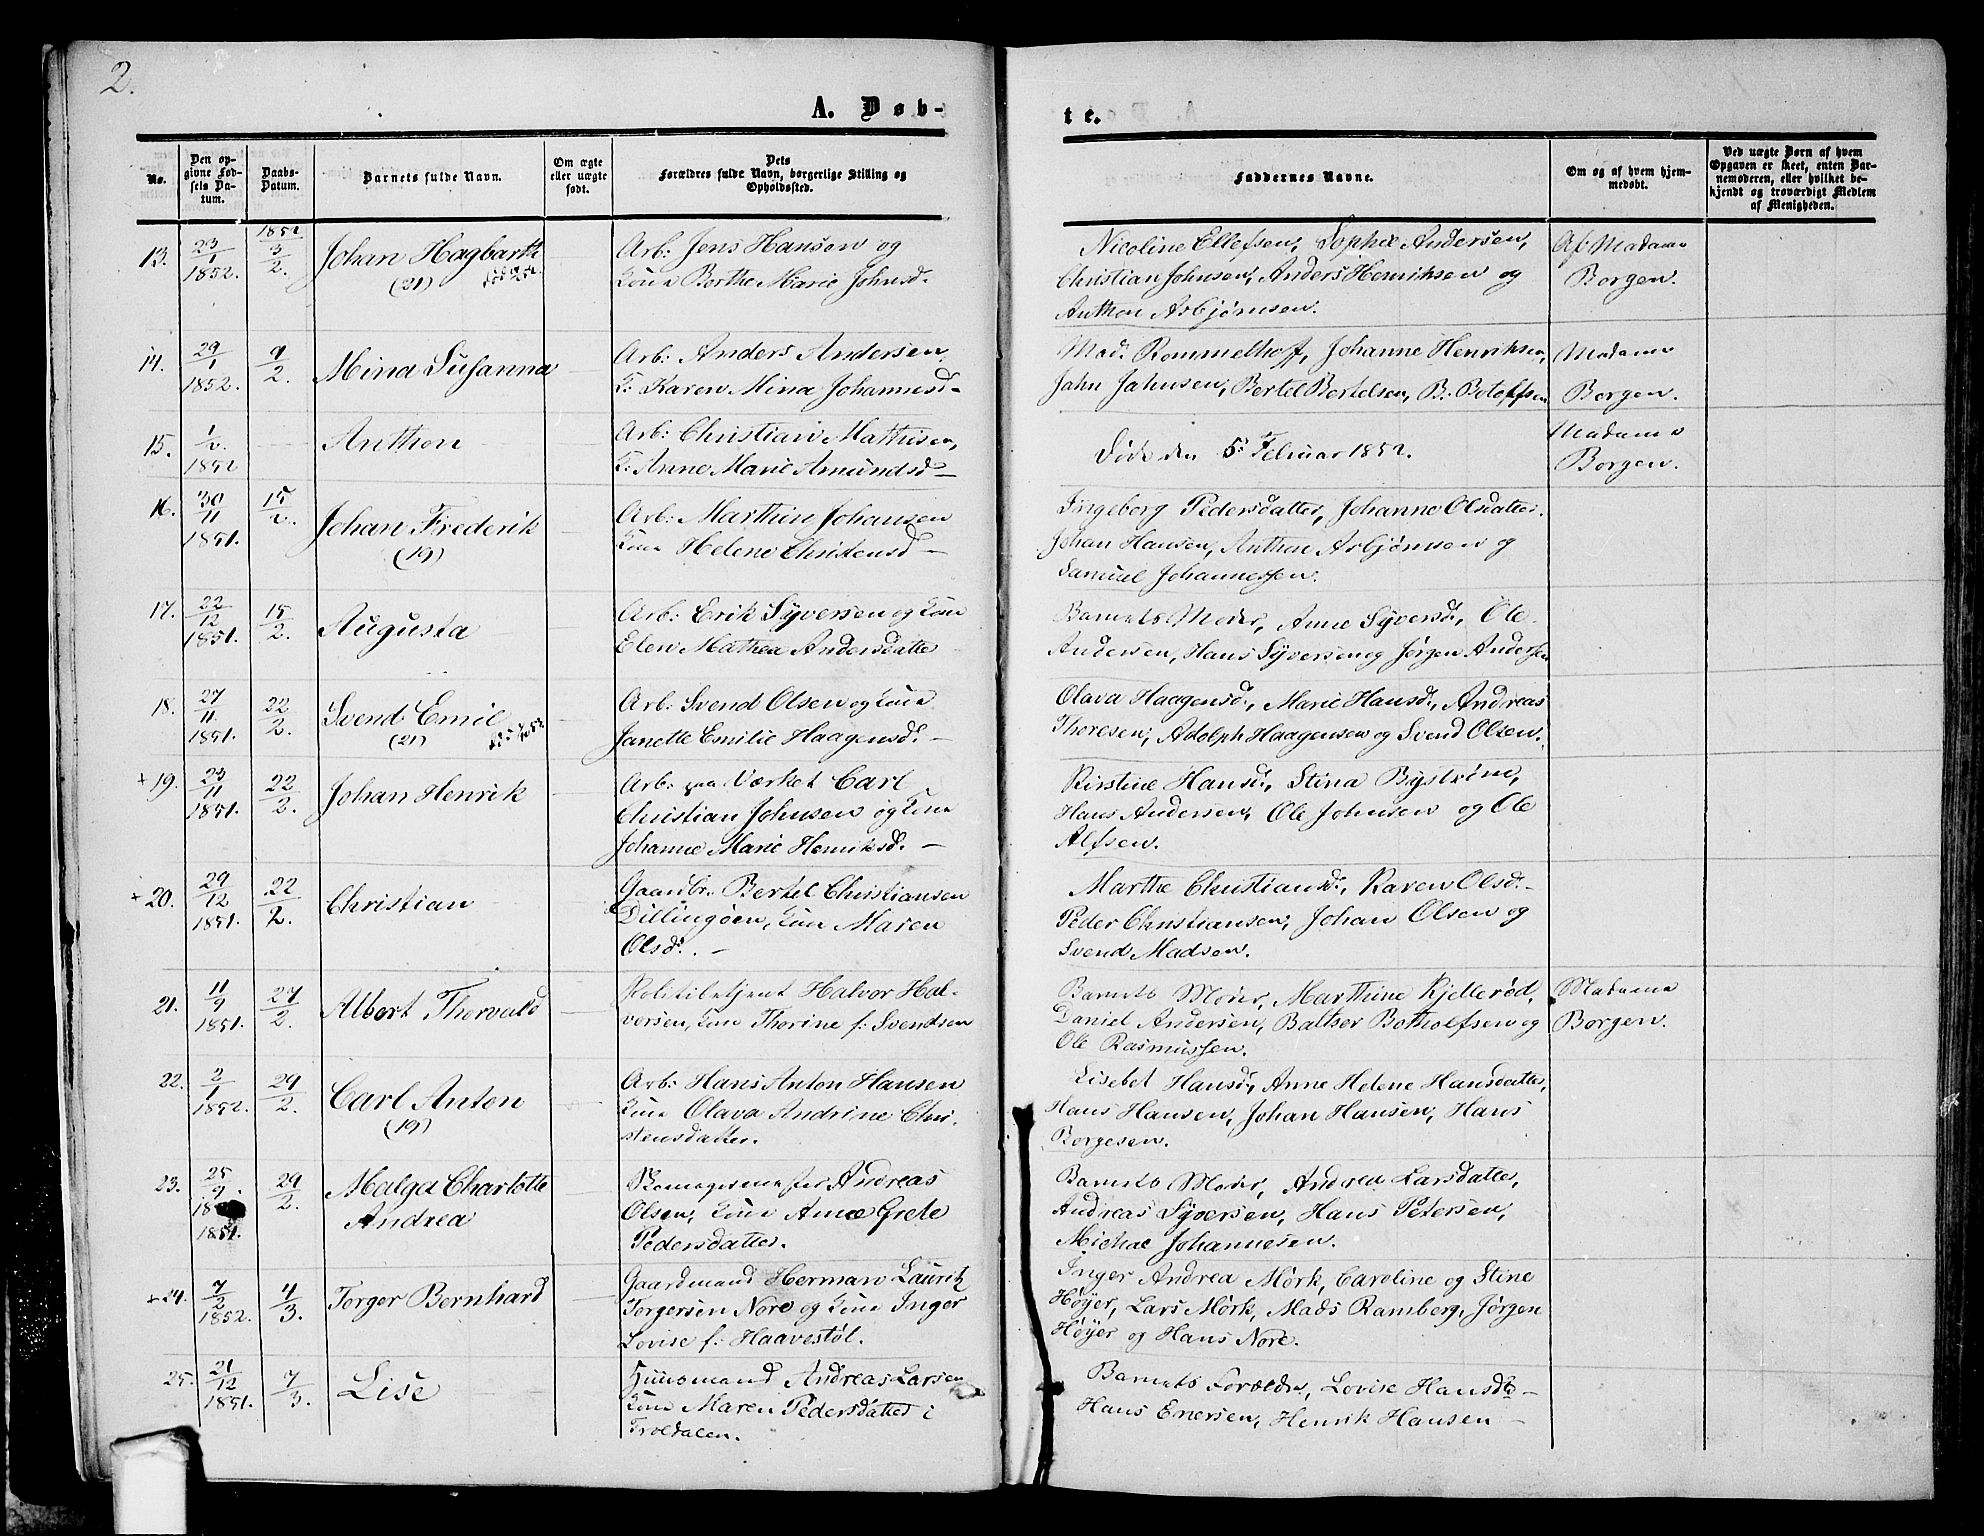 2.
A. Døb-
te.
No.
Den opgivne Fødsels Datum.
Daabs-Datum.
Barnets fulde Navn.
Om ægte eller uægte født.
Dets Forældres fulde Navn, borgerlige Stilling og Opholdssted.
Faddernes Navne.
Om og af hvem hjemmedøbt.
Ved uægte Børn af hvem Opgaven er skeet, enten Barnemoderen, eller hvilket bekjendt og troværdigt Medlem af Menigheden.
13. 23/1 1852. 1852 3/2. Johan Hagbarth
(21)
Arb: Jens Hansen og
Kone Berthe Marie Johnsd.
Nicoline Ellefsen, Sophie Andersen,
Christian Johnsen, Anders Henriksen og
Anthon Asbjørnsen.
Af Madame
Borgen.
14. 29/1 1852. 9/2. Mina Susanna
Arb: Anders Andersen
K: Karen Mina Johannesd-
Mad: Rommelhoff, Johanne Henriksen,
Jahn Jahnsen, Bertel Bertelsen, B. Botolfsen
Madame
Borgen.
15. 1/2 1852 Anthon
Arb: Christian Mathisen,
K: Anne Marie Amundsd-
Døde den 5 Februar 1852.
Madame
Borgen.
16. 30/11 1851. 15/2. Johan Frederik
(19)
Arb: Marthin Johansen
Kone Helene Christensd-
Ingeborg Pedersdatter, Johanne Olsdatter.
Johan Hansen, Anthon Asbjørnsen og
Samuel Johannessen.
17. 22/12 1851. 15/2. Augusta
Arb: Erik Syversen og Kone
Elen Mathea Andersdatter
Barnets Moder, Anne Syversd, Ole
Andersen, Hans Syversen og Jørgen Andersen
18. 27/11 1851. 22/2. Svend Emil
(21)
Arb: Svend Olsen og Kone
Janette Emilie Haagensd. -
Olava Haagensd, Marie Hansd., Andreas
Thoresen, Adolph Haagensen og Svend Olsen.
+ 19. 23/11 1851. 22/2. Johan Henrik
Arb: paa Værket Carl
Christian Johnsen og Kone
Johanne Marie Henriksd. -
Kirstine Hansd, Stina Byström,
Hans Andersen, Ole Johnsen og Ole
Alfsen.
+ 20. 29/12 1851. 22/2. Christian
Gaardbr. Bertel Christiansen
Dillingøen, Kone Maren
Olsd. -
Marthe Christiansd, Karen Olsd. -
Peder Christiansen, Johan Olsen og
Svend Madsen.
21. 11/9 1851. 27/2. Albert Thorvald
Politibetjent Halvor Hal-
vorsen, Kone Thorine f: Svendsen
Barnets Moder, Marthine Kjellerød,
Daniel Andersen, Baltser Botholfsen og
Ole Rasmussen.
Madame
Borgen.
22. 2/1 1852. 29/2. Carl Anton
(19)
Arb: Hans Anton Hansen
Kone Olava Andrine Chri-
stensdatter.
Lisebet Hansd, Anne Helene Hansdatter,
Hans Hansen, Johan Hansen, Hans
Borgesen.
23. 25/9 1851. 29/2. Malga Charlotte
Andrea
Skomagermester Andreas
Olsen, Kone Anne Grete
Pedersdatter.
Barnets Moder, Andrea Larsdatter,
Andreas Syversen, Hans Petersen,
Michae Johannesen.
+ 24. 7/2 1852. 4/3. Torger Bernhard
Gaardmand Herman Lauritz
Torgersen Nore og Kone Inger
Lovise f: Haavestøl.
Inger Andrea Mörk, Caroline og Stine
Høyer, Lars Mörk, Mads Ramberg, Jørgen
Høyer og Hans Nore.
25. 21/12 1851. 7/3. Lise
Huusmand Andreas Larsen
Kone Maren Pedersdatter i
Troldalen.
Barnets Forældre, Lovise Hansdt -
Hans Enersen, Henrik Hansen -